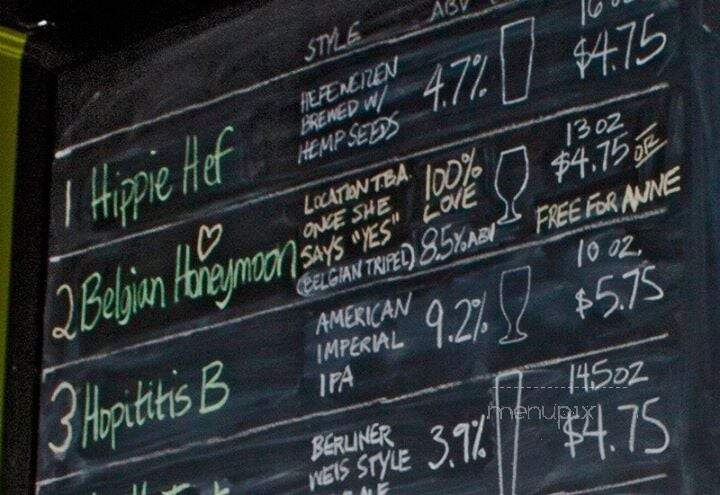 STYLE ABV
1 Hippie Hef
HEFEWEIZEN
BREWED W/
HEMP SEEDS
4.7%
16 oz
$4.75
2 Belgian Honeymoon
LOCATION TBA
ONCE SHE
SAYS "YES"
(BELGIAN TRIPEL)
100%
LOVE
8.5% ABV
13 OZ
$4.75 OR
FREE FOR ANNE
3 Hopititis B
AMERICAN
IMPERIAL
IPA
9.2%
10 OZ.
$5.75
BERLINER
WEIS STYLE
ALE
3.9%
14.5 OZ
$4.75
menupix